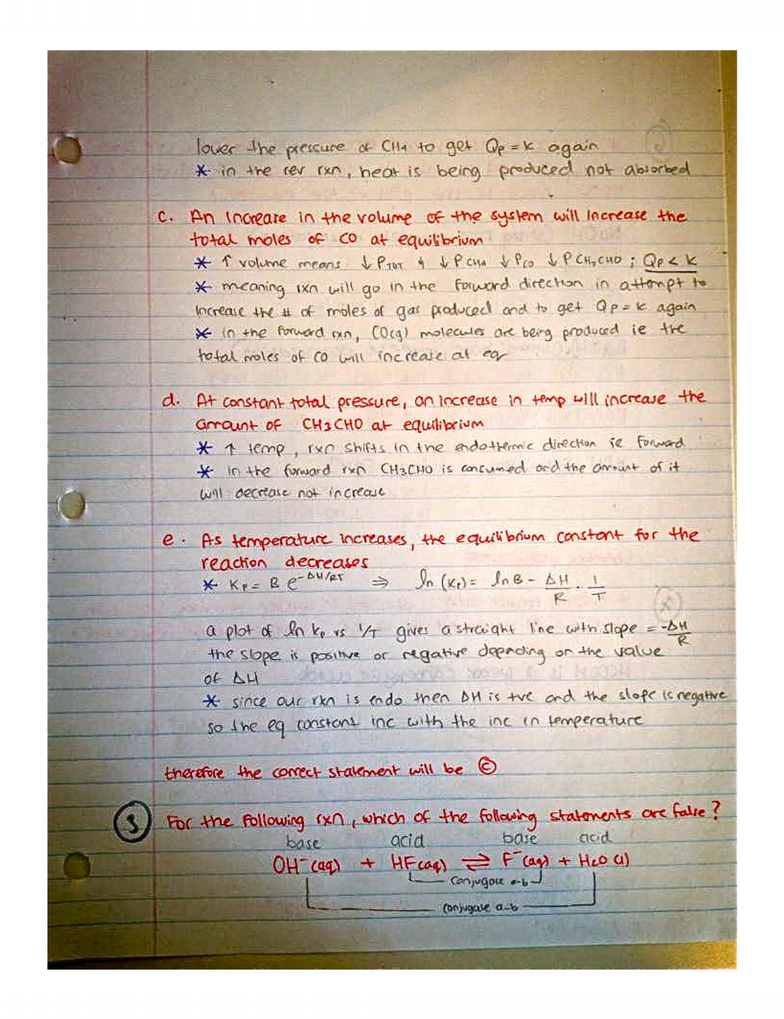 lower the pressure of CH4 to get Qp = K again
* in the rev rxn, heat is being produced not absorbed
c. An Increase in the volume of the system will increase the
total moles of CO at equilibrium
* ↑ volume means ↓PTOT & ↓PCH4 ↓PCO ↓PCH3CHO ; Qp < K
* meaning rxn will go in the forward direction in attempt to
increase the # of moles of gas produced and to get Qp = K again
* in the forward rxn, CO(g) molecules are being produced ie the
total moles of CO will increase at eq
d. At constant total pressure, an increase in temp will increase the
amount of CH3CHO at equilibrium
* ↑ temp, rxn shifts in the endothermic direction ie forward
* In the forward rxn CH3CHO is consumed and the amount of it
will decrease not increase
e. As temperature increases, the equilibrium constant for the
reaction decreases
* Kp = B e^-ΔH/RT ⇒ ln (Kp) = ln B - ΔH/R · 1/T
a plot of ln Kp vs 1/T gives a straight line with slope = -ΔH/R
the slope is positive or negative depending on the value
of ΔH
* since our rxn is endo then ΔH is +ve and the slope is negative
so the eq constant inc with the inc in temperature
therefore the correct statement will be ©
3 For the following rxn, which of the following statements are false?
base acid base acid
OH⁻(aq) + HF(aq) ⇌ F⁻(aq) + H2O (l)
conjugate a-b
conjugate a-b